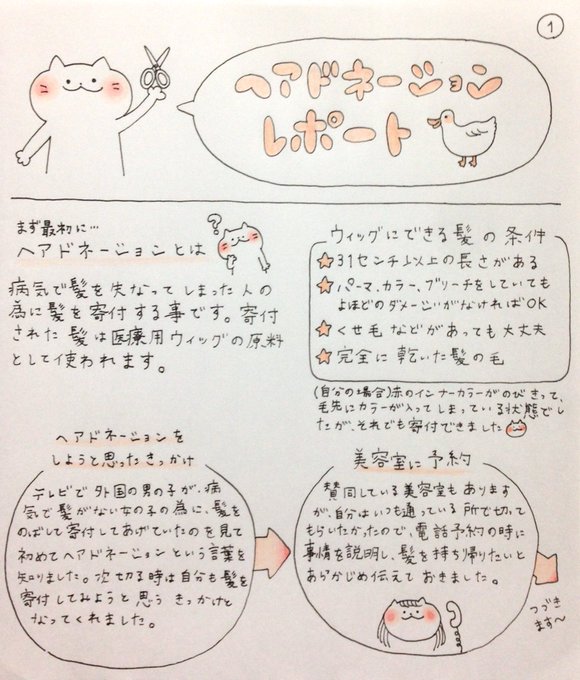 1
ヘアドネーション
レポート
まず最初に…
ヘアドネーションとは
?
病気で髪を失なってしまった人の
為に髪を寄付する事です。寄付
された髪は医療用ウィッグの原料
として使われます。
ウィッグにできる髪の条件
★31センチ以上の長さがある
★パーマ、カラー、ブリーチをしていても
よほどのダメージがなければOK
★くせ毛などがあっても大丈夫
★完全に乾いた髪の毛
(自分の場合)赤のインナーカラーがのびきって、
毛先にカラーが入ってしまっている状態でし
たが、それでも寄付できました
ヘアドネーションを
しようと思ったきっかけ
テレビで外国の男の子が、病
気で髪がない女の子の為に、髪を
のばして寄付してあげていたのを見て
初めてヘアドネーションという言葉を
知りました。次切る時は自分も髪を
寄付してみようと思うきっかけと
なってくれました。
美容室に予約
賛同している美容室もあります
が、自分はいつも通っている所で切って
もらいたかったので、電話予約の時に
事情を説明し、髪を持ち帰りたいと
あらかじめ伝えておきました。
つづき
ます〜